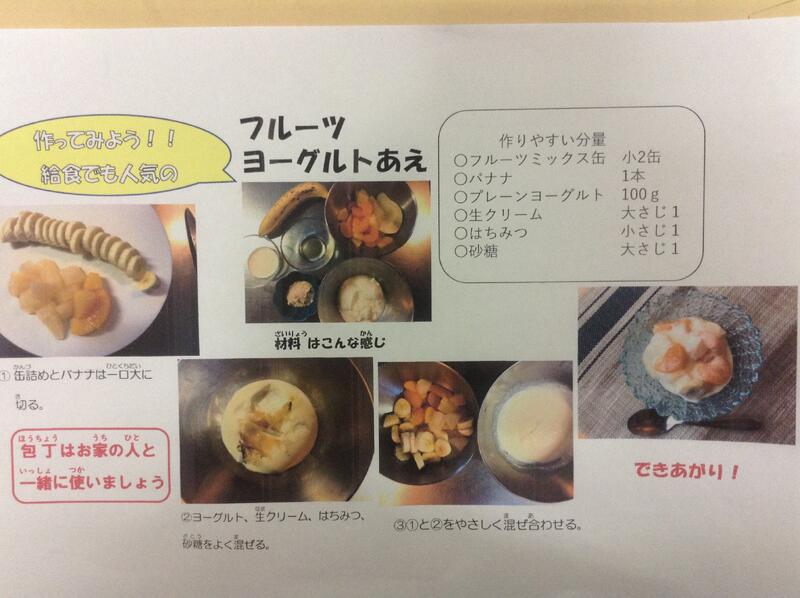 作ってみよう！！
給食でも人気の
フルーツ
ヨーグルトあえ
作りやすい分量
○フルーツミックス缶　小2缶
○バナナ　1本
○プレーンヨーグルト　100ｇ
○生クリーム　大さじ１
○はちみつ　小さじ１
○砂糖　大さじ１
ざいりょう　かん
材料 はこんな感じ
かんづ　ひとくちだい
① 缶詰めとバナナは一口大に
き
切る。
ほうちょう　うち　ひと
包丁はお家の人と
いっしょ　つか
一緒に使いましょう
なま
②ヨーグルト、生クリーム、はちみつ、
さとう　ま
砂糖をよく混ぜる。
ま　あ
③①と②をやさしく混ぜ合わせる。
できあがり！